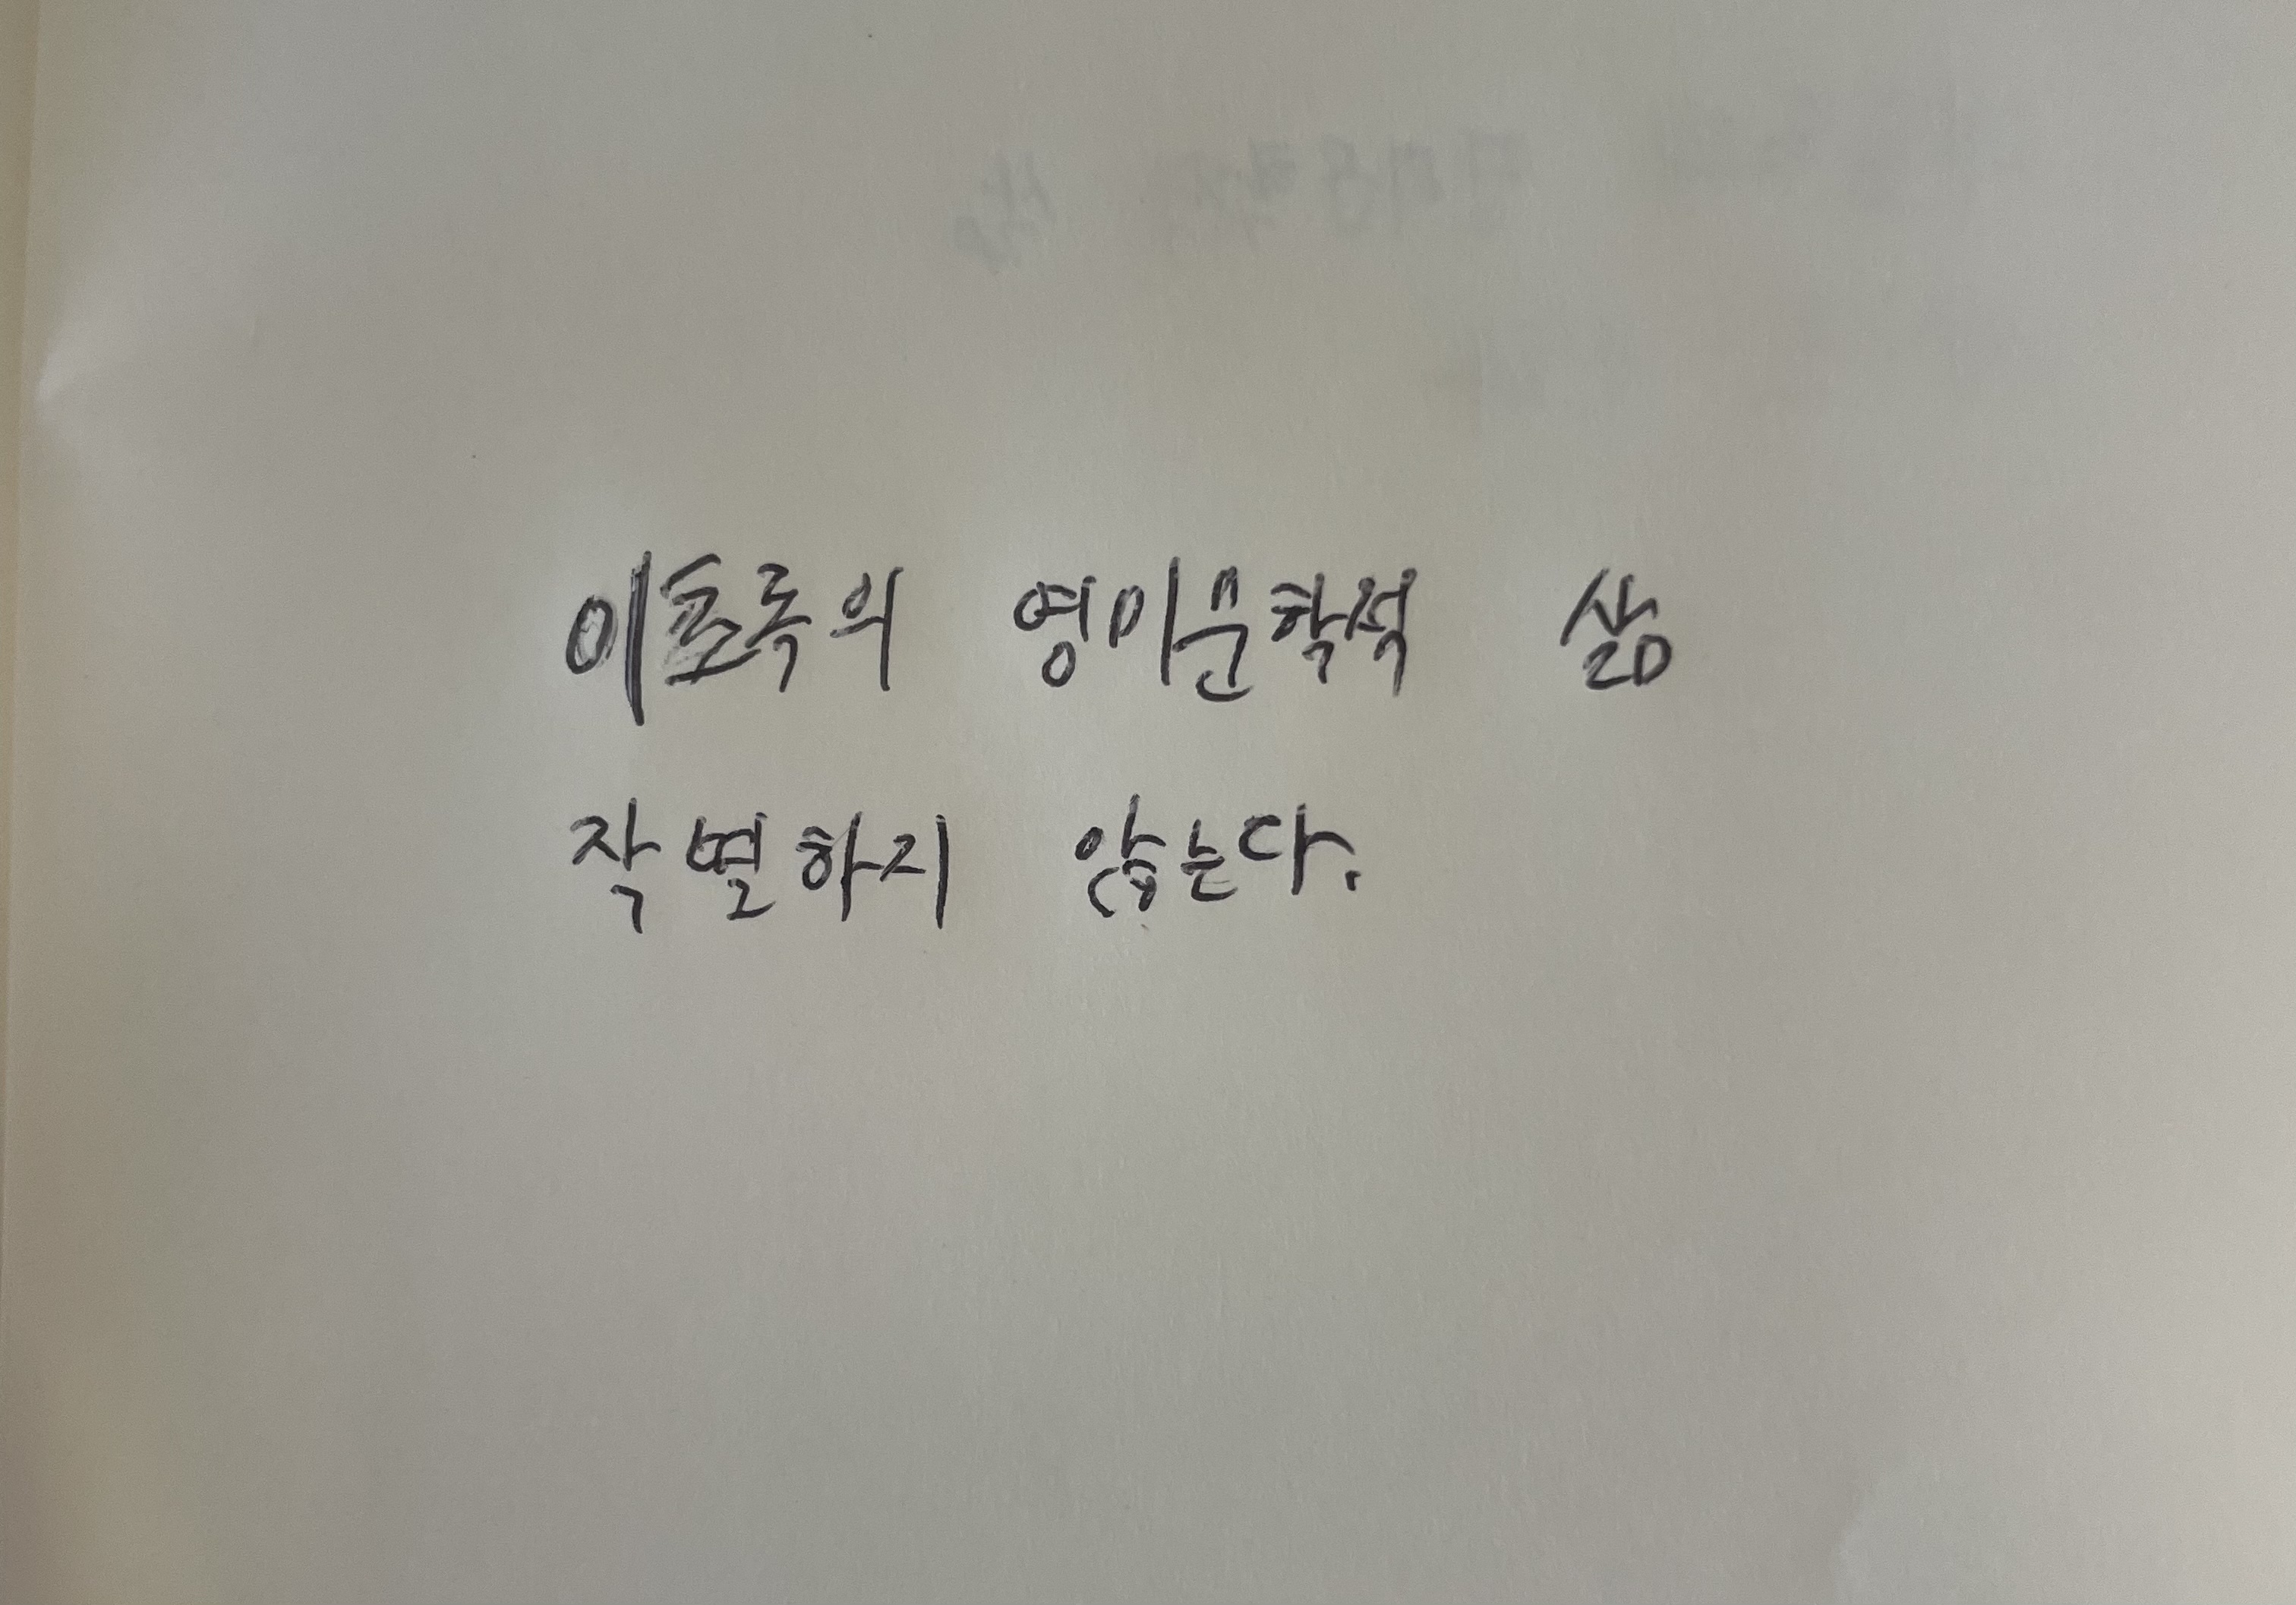 이초록의 영미문학적 삶
작별하지 않는다.